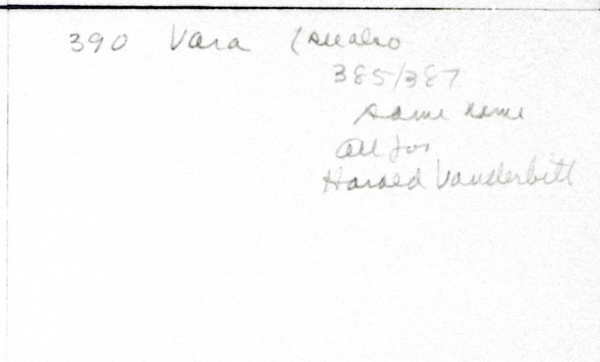 390 Vara (See also
385/387
same name
all for
Harold Vanderbilt